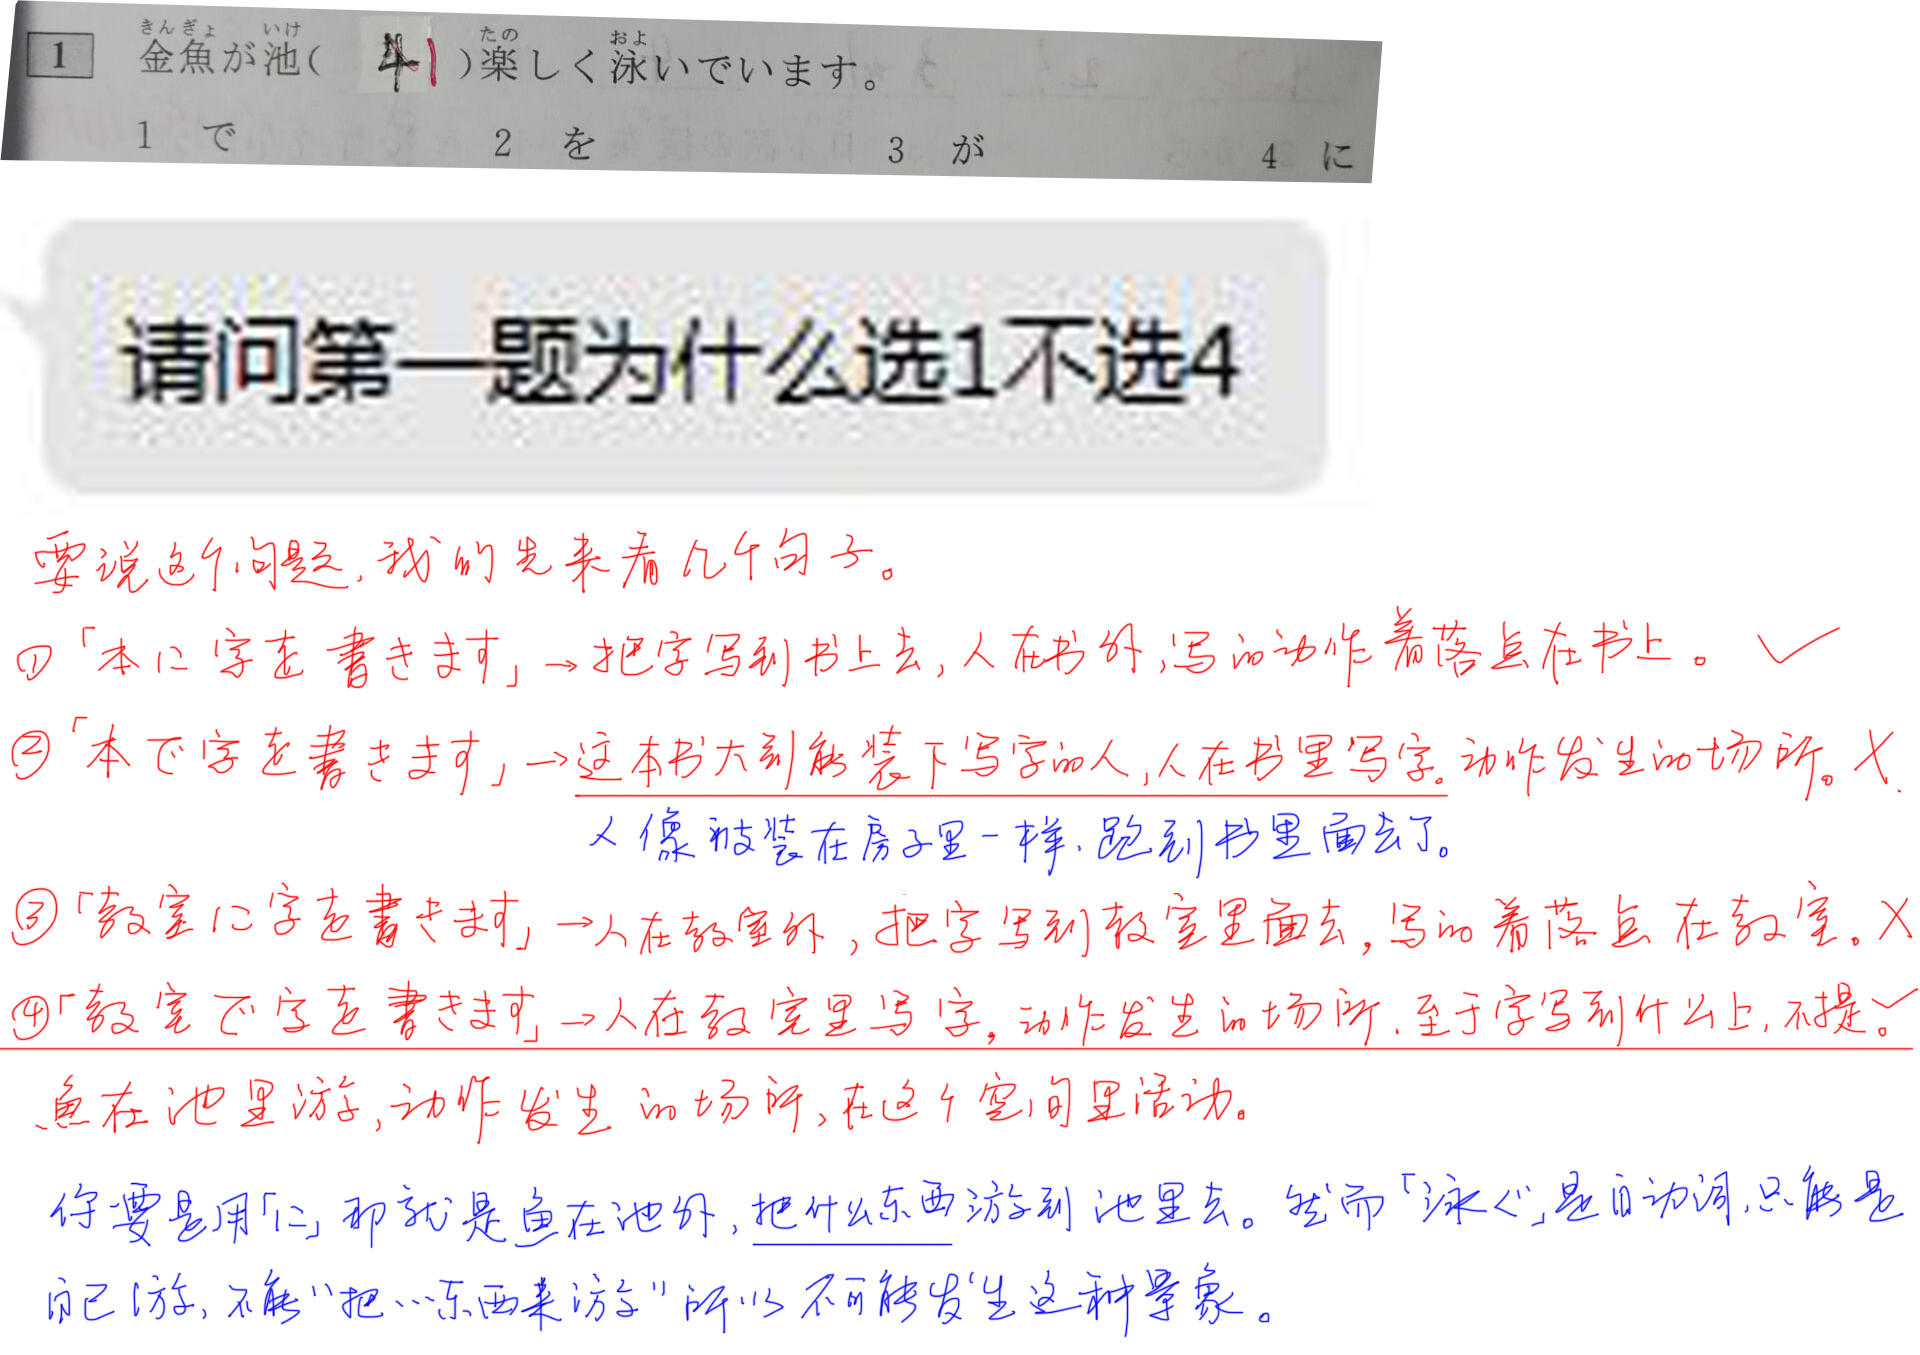 1 金魚が池( 41 )楽しく泳いでいます。
きんぎょ いけ たの およ
1 で 2 を 3 が 4 に
请问第一题为什么选1不选4
要说这个问题,我们先来看几个句子。
①「本に字を書きます」→把字写到书上去,人在书外,写的动作着落点在书上。✓
②「本で字を書きます」→这本书大到能装下写字的人,人在书里写字。动作发生的场所。X.
人像被装在房子里一样,跑到书里面去了。
③「教室に字を書きます」→人在教室外,把字写到教室里面去,写的着落点在教室。X
④「教室で字を書きます」→人在教室里写字。动作发生的场所.至于字写到什么上,不提。✓
鱼在池里游,动作发生的场所,在这个空间里活动。
你要是用「に」那就是鱼在池外,把什么东西游到池里去。然而「泳ぐ」是自动词,只能是
自己游,不能“把…东西来游”所以不可能发生这种景象。